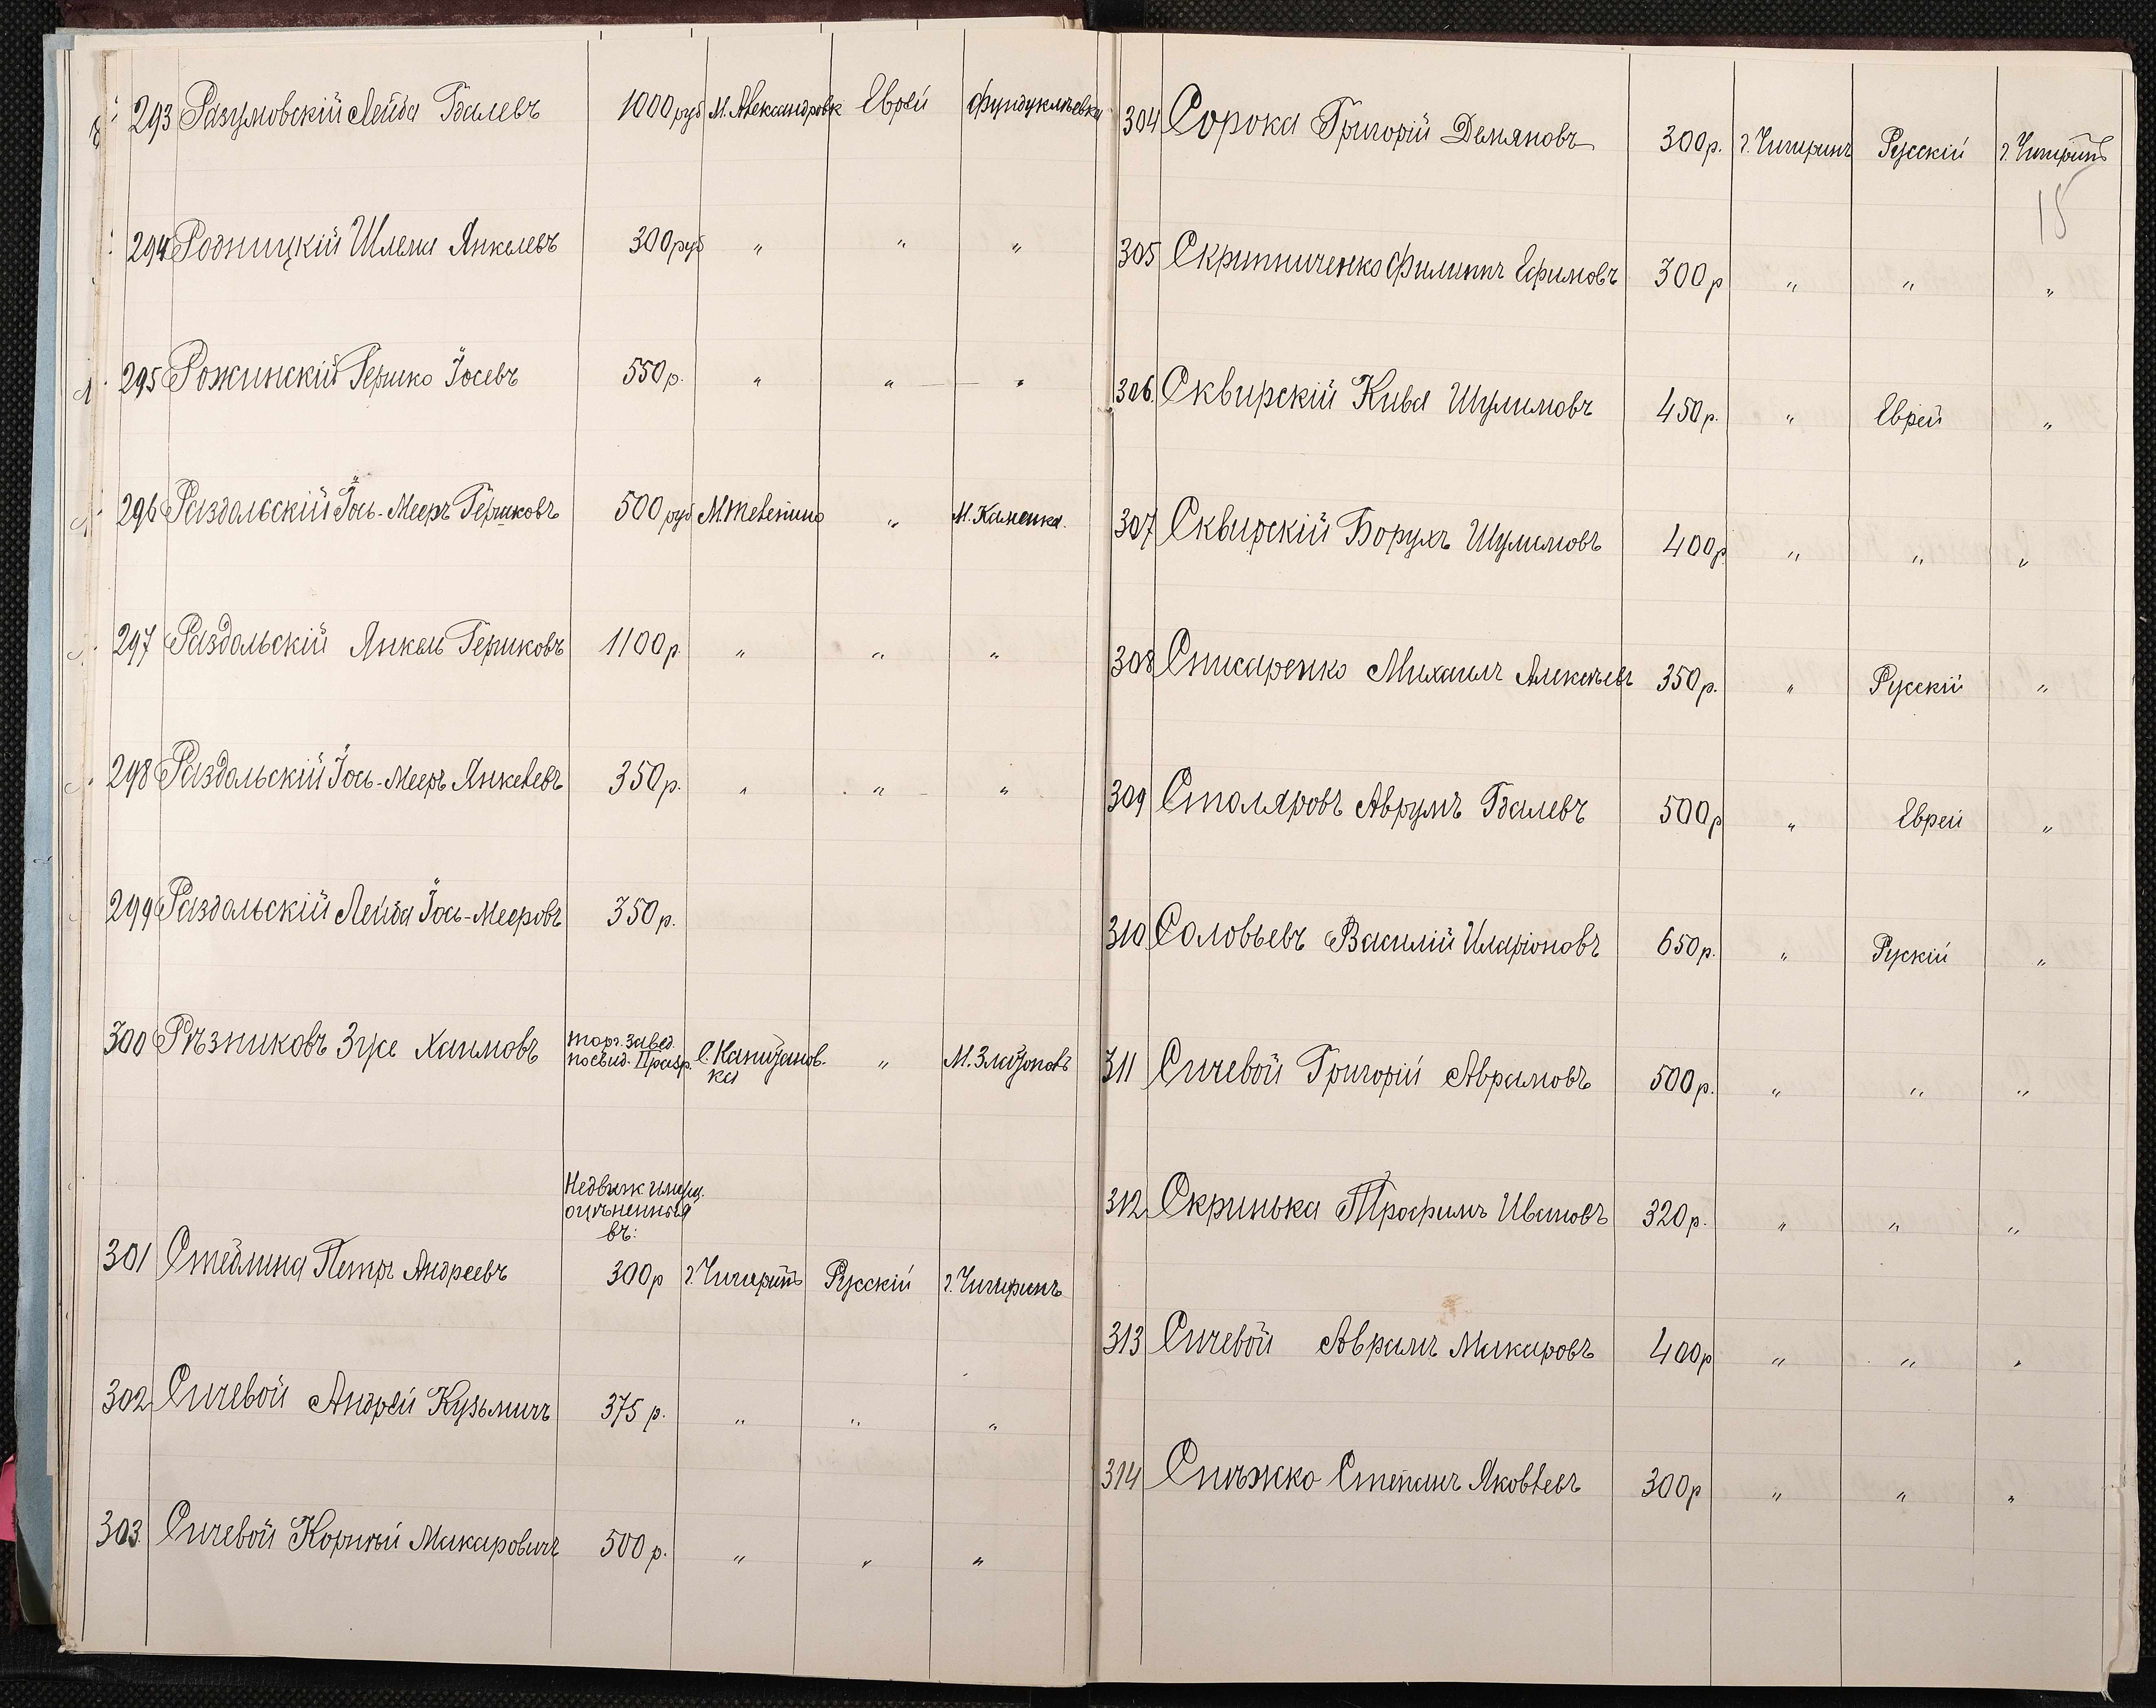 293 Разумовскій Лейба Гдалевъ 1000 руб М. Александровк Еврей Фундуклѣевка
294 Родницкій Шлема Янкелевъ 300 руб " " "
295 Рожинскій Гершко Іосевъ 550 р. " " "
296 Раздольскій Іось-Мееръ Гершковъ 500 руб М. Телепино " М. Каменка.
297 Раздольскій Янкель Гершковъ 1100 р. " " "
298 Раздольскій Іось-Мееръ Янкелевъ 350 р. " " "
299 Раздольскій Лейба Іось-Мееровъ 350 р.
300 Рѣзниковъ Зусе Хаимовъ торг. завед.
посвид. II разр. с. Капитанов-
ка " М. Златополь
Недвиж имущ.
оцѣненныя
въ:
301 Стеблина Петръ Андреевъ 300 р г. Чигиринъ Русскій г. Чигиринъ
302 Сичевой Андрей Кузьмичъ 375 р. " " "
303. Сичевой Корнѣй Макаровичъ 500 р. " " "
304 Сорока Григорій Демяновъ 300 р. г. Чигиринъ Русскій г. Чигиринъ
15
305 Скрипниченко Филиппъ Ефимовъ 300 р " " "
306. Сквирскій Кива Шулимовъ 450 р. " Еврей "
307 Сквирскій Борухъ Шулимовъ 400 р " " "
308 Списаренко Михаилъ Алексѣевъ 350 р. " Русскій "
309 Столяровъ Аврумъ Гдалевъ 500 р " Еврей "
310 Соловьевъ Василій Иларіоновъ 650 р. " Рускій "
311 Сичевой Григорій Аврамовъ 500 р. " " "
312 Скринька Трофимъ Ивановъ 320 р. " " "
313 Сичевой Аврамъ Макаровъ 400 р " " "
314 Снѣжко Степанъ Яковлевъ 300 р " " "